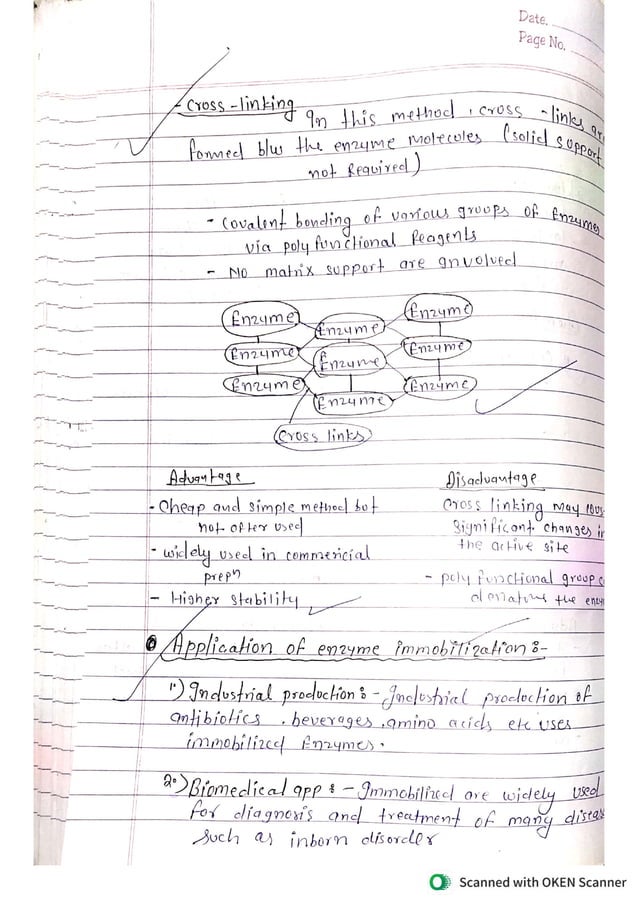 Date.
Page No.
- Cross-linking
In this method, cross-links are
formed b/w the enzyme molecules (solid support
not required)
- Covalent bonding of various groups of Enzymes
via poly functional Reagents
- No matrix support are involved
Enzyme Enzyme Enzyme
Enzyme Enzyme Enzyme
Enzyme Enzyme Enzyme
Cross links
Advantage Disadvantage
- Cheap and simple method but
not often used
- widely used in commericial
prepn
- Higher stability
Cross linking may
significant changes in
the active site
- poly functional group
denature the
Application of enzyme immobilization :-
1.) Industrial production :- Industrial production of
antibiotics, beverages, amino acids etc uses
immobilized Enzymes.
2.) Biomedical app :- Immobilized are widely used
for diagnosis and treatment of many diseas
such as inborn disorder
Scanned with OKEN Scanner